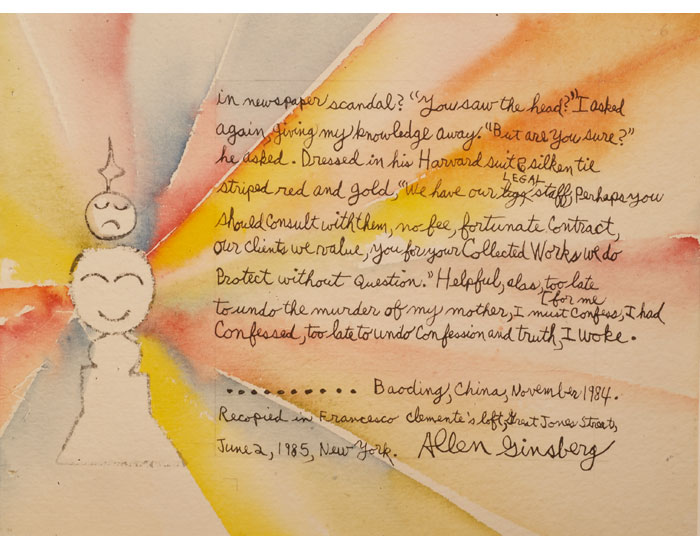 in newspaper scandal? "You saw the head?" I asked
again, giving my knowledge away. "But are You sure?"
he asked. Dressed in his Harvard suit & silken tie
LEGAL
striped red and gold, "We have our staff, Perhaps you
should Consult with them, no fee, fortunate Contract,
our clients we value, you for your Collected Works we do
Protect without Question." Helpful, alas, too late
for me
to undo the murder of my mother, I must Confess, I had
Confessed, too late to undo Confession and truth, I woke.
.......... Baoding, China, November 1984.
Recopied in Francesco Clemente's loft, Great Jones Street,
June 2, 1985, New York. Allen Ginsberg